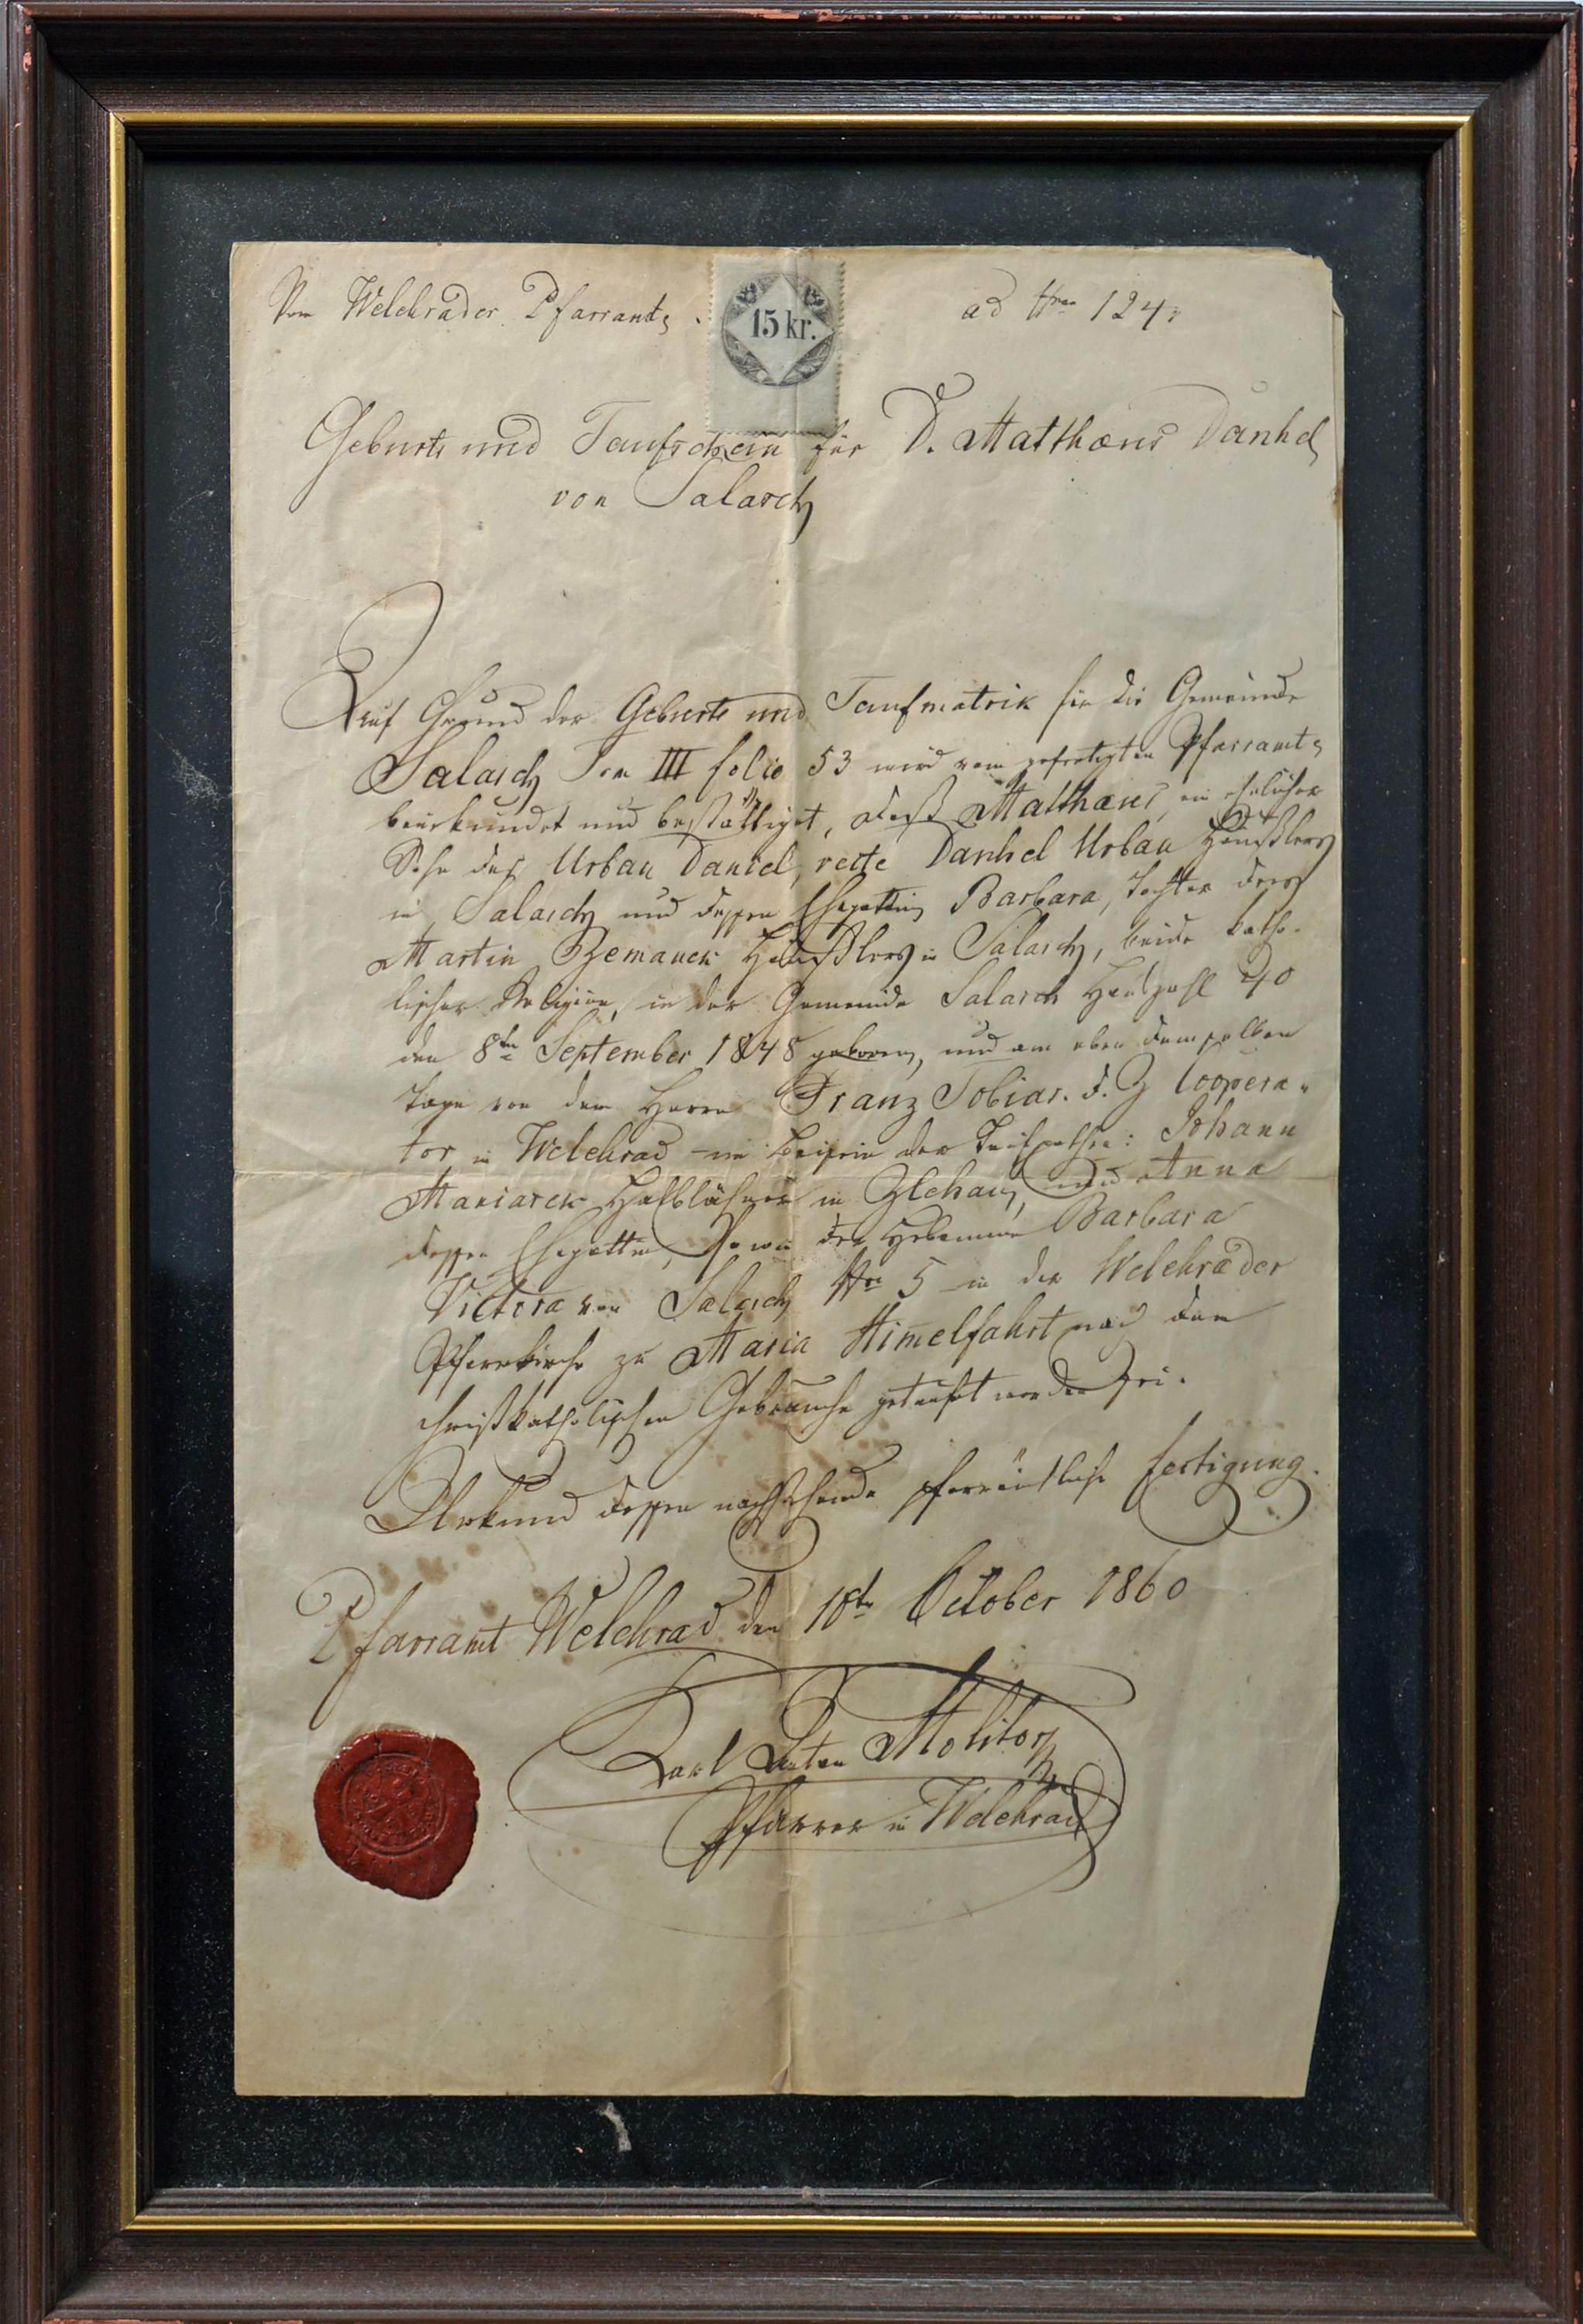 Vom Welehrader Pfarramte.
15 kr.
ad Nro 124
Geburts und Taufschein für D. Matthæus Danhel
von Salasch
Auf Grund der Geburts und Taufmatrik für die Gemeinde
Salasch Tom III folio 53 wird vom gefertigten Pfarramte
beurkundet und bestättiget, daß Matthæus, ein ehelicher
Sohn des Urban Daniel, recte Danhel Urban Häußlers
in Salasch und dessen Ehegattin Barbara, Tochter des
Martin Zemanek Häußlers in Salasch, beide katho-
lischer Religion, in der Gemeinde Salasch Hauszahl 40
den 8ten September 1848 geboren, und am eben demselben
Tage von dem Herrn Franz Tobias. d. Z Coopera-
tor in Welehrad im Beisein der Taufpathen: Johann
Maniasek Halblähner in Zlehau, und Anna
dessen Ehegattin, so wie der Hebamme Barbara
Victora von Salasch Nro 5 in der Welehrader
Pfarrkirche zu Maria Himelfahrt nach dem
christkatholischen Gebrauche getauft worden sei.
Urkund dessen nachstehende pfarrämtliche Fertigung.
Pfarramt Welehrad den 10te October 1860
Karl Anton Molitor
Pfarrer in Welehrad